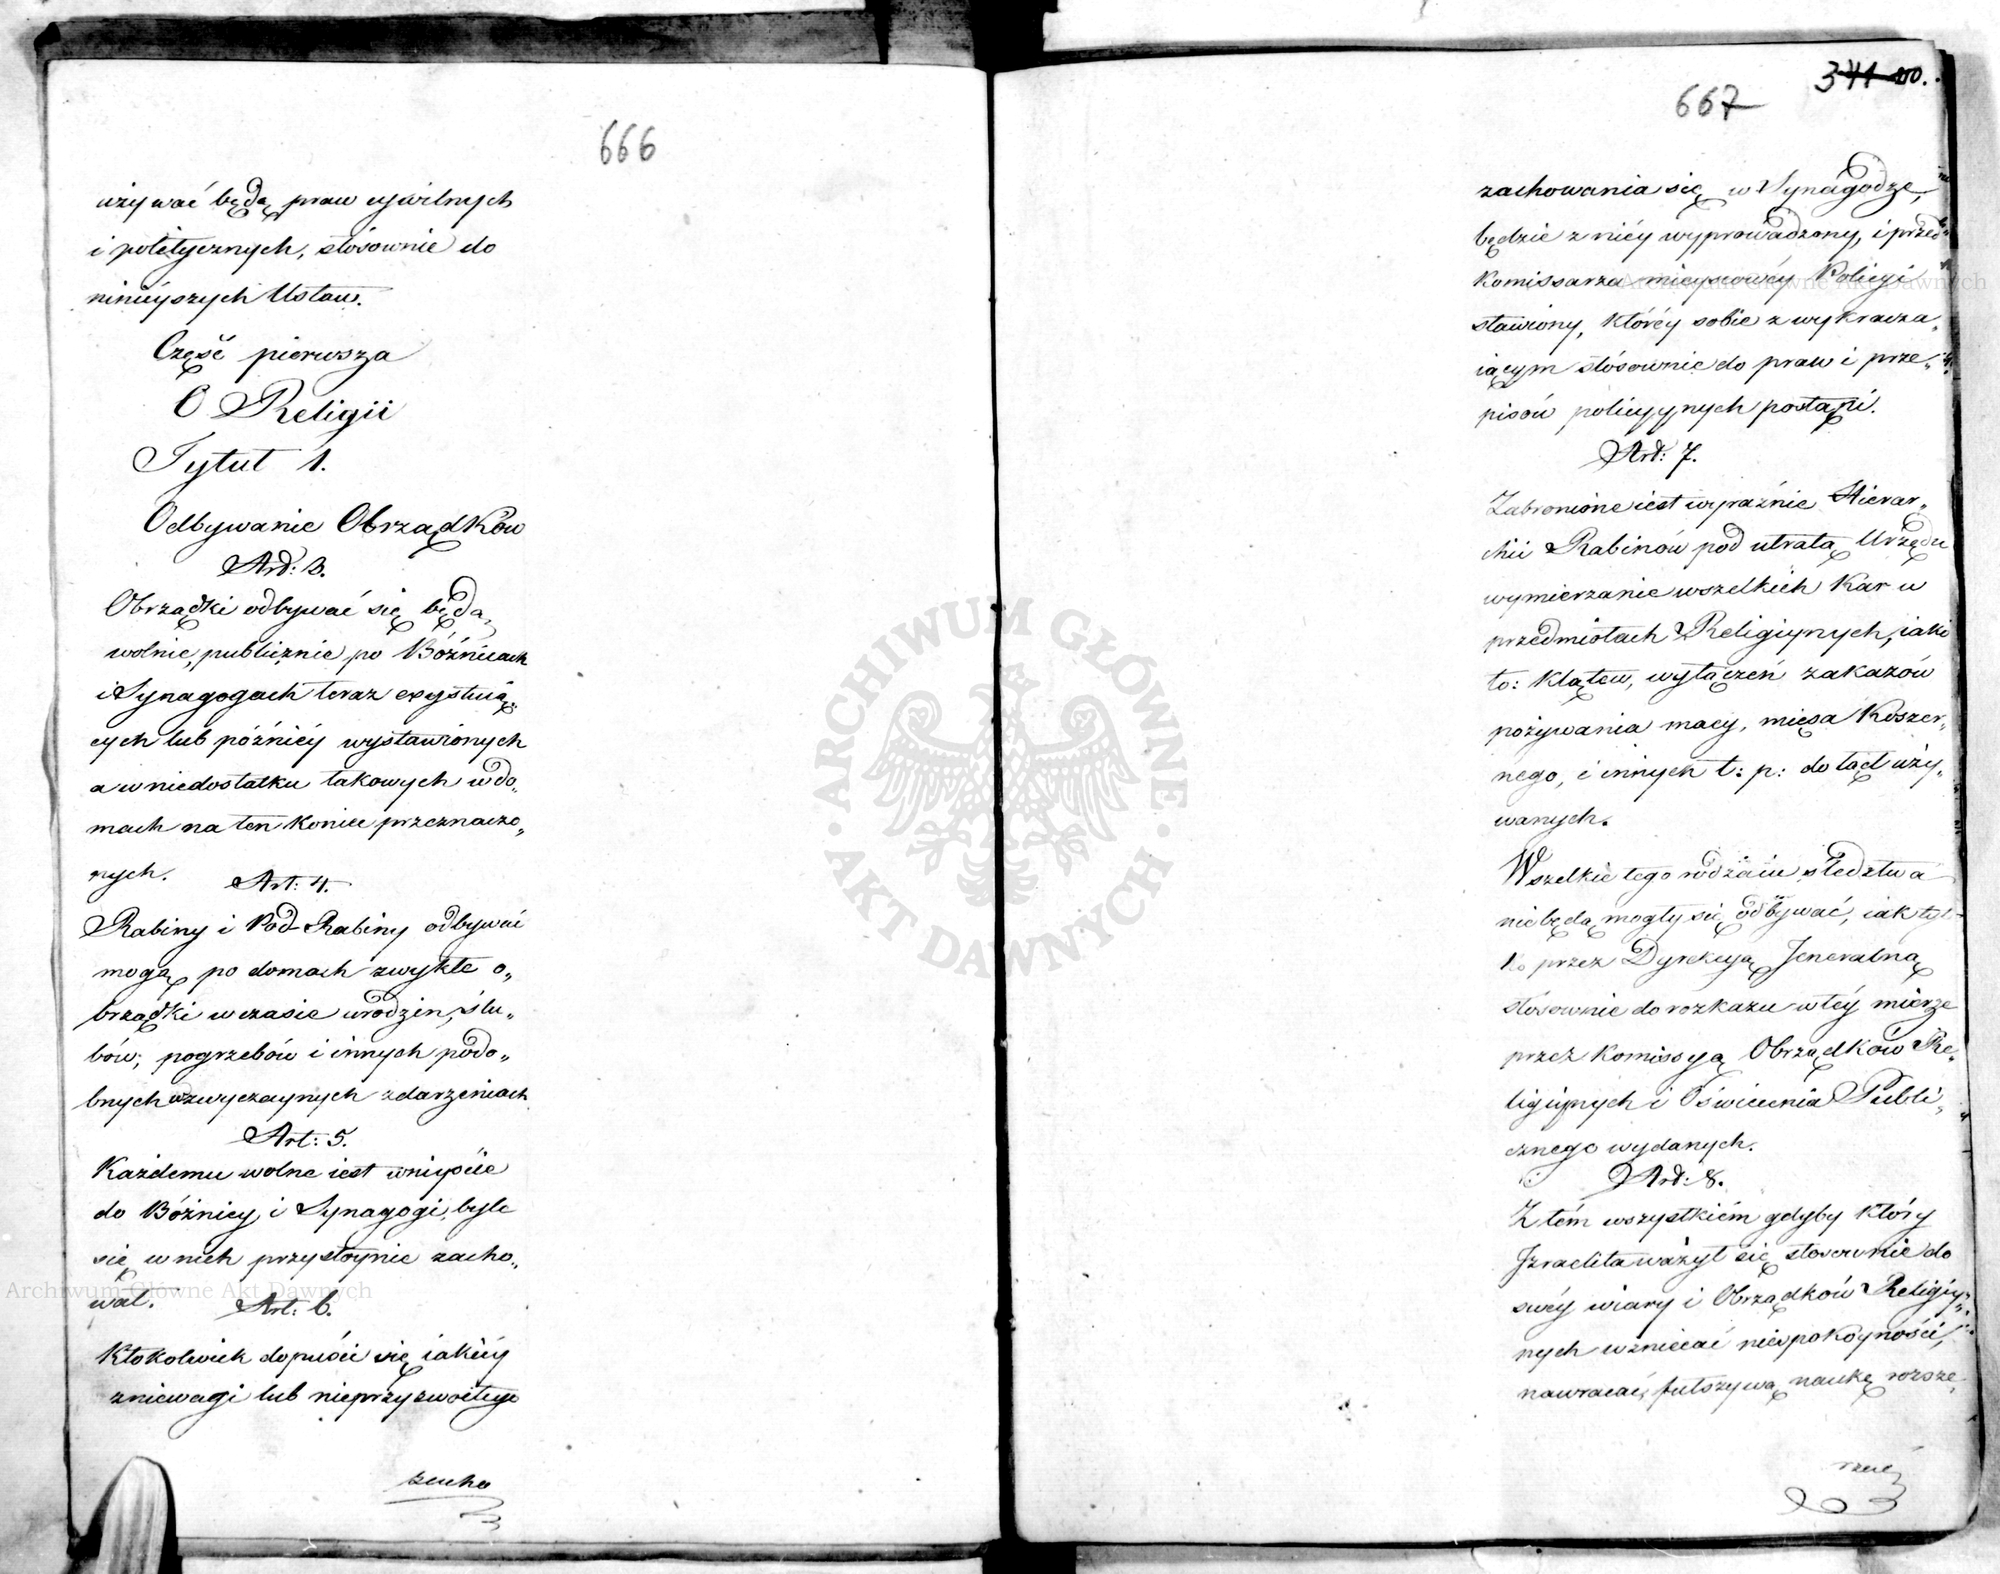 666
używać będą praw cywilnych
i politycznych, stósownie do
ninieyszych Ustaw.
Część pierwsza
O Religii
Tytuł 1.
Odbywanie Obrządków
Art: 3.
Obrządki odbywać się będą,
wolnie, publicznie po Bóźnicach
i Synagogach teraz exystuią„
cych lub późniéy wystawionych
a w niedostatku takowych w do„
mach na ten koniec przeznaczo„
nych.
Art: 4.
Rabiny i Pod-Rabiny odbywać
mogą po domach zwykłe o„
brządki w czasie urodzin, ślu„
bów; pogrzebów i innych podo„
bnych zwyczaynych zdarzeniach
Art: 5.
Każdemu wolne iest wniyście
do Bóżnicy i Synagogi, byle
się w nich przystoynie zacho„
wał.
Art: 6.
Ktokolwiek dopuści się iakiéy
zniewagi lub nieprzyzwoitego
zacho
667
341
zachowania się w Synagodze,
będzie z niéy wyprowadzony, i przed
Komissarza mieyscowéy Policyi
stawiony, któréy sobie z wykracza„
iącym stósownie do praw i prze„
pisów policyynych postąpi.
Art: 7.
Zabronione iest wyraźnie Hierar„
chii Rabinów pod utratą Urzędu
wymierzanie wszelkich Kar w
przedmiotach Religiynych, iako
to: Klątew, wyłączeń zakazów
pożywania macy, mięsa Koszer„
nego, i innych t: p: dotąd uży„
wanych.
Wszelkie tego rodzaiu śledztwa
nie będą mogły się odbywać, iak tyl
ko przez Dyrekcyą Jeneralną
stósownie do rozkazu w téy mierze
przez Komissyą Obrządków Re„
ligiynych i Oświecenia Publi„
cznego wydanych.
Art: 8.
Z tém wszystkiém gdyby który
Izraelita ważył się stosownie do
swéy wiary i Obrządków Religiy„
nych wzniecać niespokoyności,
nawracać, fałszywą naukę rozsze„
rzać
ARCHIWUM GŁÓWNE • AKT DAWNYCH •
Archiwum Główne Akt Dawnych
Archiwum Główne Akt Dawnych